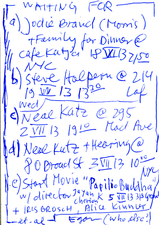 WAITING FOR
a) Jodie Brand (Mom's)
+ Family for Dinner @
Cafe Katja 18 VII 13 2150
NYC
b) Steve Halpern @ 214
19 VII 13 1330 Laf
Wed
c) Neal Katz @ 295
2 VII 13 1910 Mad Ave
d) Neal Katz + Hearing @
80 Broad St 3 VII 13 10
NYC
e) Start Movie "Papilio Buddha"
w/ director Jayan
Cherian @ 5 VII 13
+ IRIS GROSCH, Alice Kinner
et al (who else?)